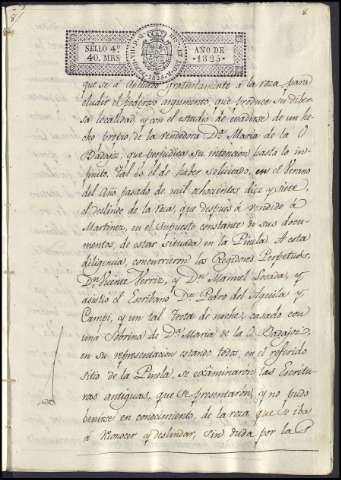 8
SELLO 4º
40. MRS
AÑO DE
1825
que se á deducido gratuitamente á la raza para
eludir el poderoso argumento que produce su diver-
sa localidad, y con el estudio de evadirse de un he-
cho propio de la vendedora Dª Maria de la O
Badajoz, que perjudica su intencion hasta lo in-
finito. Tal es el de haber solicitado, en el Verano
del Año pasado de mil ochocientos diez y siete,
el deslinde de la raza, que despues á vendido á
Martinez, en el supuesto constante de sus docu-
mentos, de estar situada en la Pinela. A esta
diligencia, concurrieron los Regidores Perpetuos,
Dn Vicente y Dn Manuel Losada, y
asistio el Escribano Dn Pedro del Aguila y
Campi, y un tal casado con
una Sobrina de Dª Maria de la O. Badajoz,
en su representacion estando todos, en el referido
sitio de la Pinela, se examinaron las Escritu-
ras antiguas, que se presentaron, y no pudo
benirse en conocimiento, de la raza que se iba
á reconocer y deslindar, sin duda por la